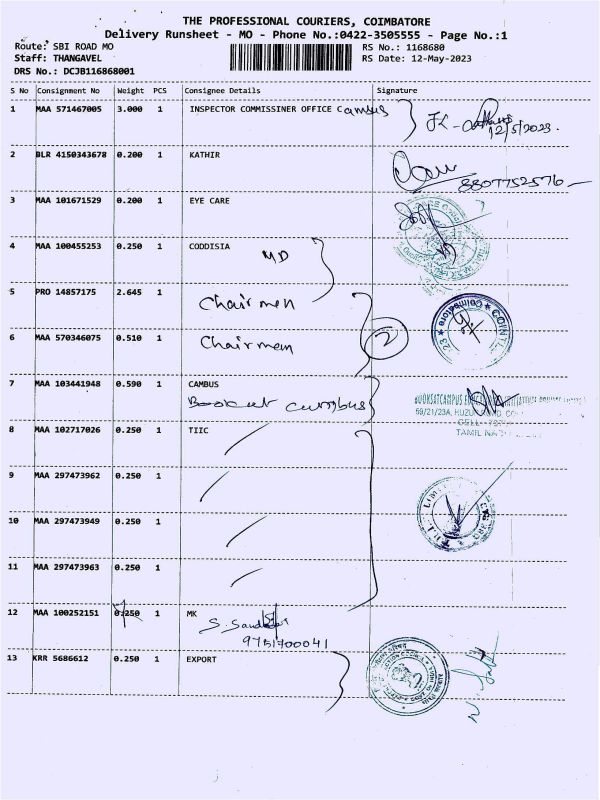 THE PROFESSIONAL COURIERS, COIMBATORE
Delivery Runsheet - MO - Phone No.:0422-3505555 - Page No.:1
Route: SBI ROAD MO RS No.: 1168680
Staff: THANGAVEL RS Date: 12-May-2023
DRS No.: DCJB116868001
S No Consignment No Weight PCS Consignee Details Signature
1 MAA 571467005 3.000 1 INSPECTOR COMMISSINER OFFICE Campus
12/5/2023.
2 BLR 4150343678 0.200 1 KATHIR
8807752576
3 MAA 101671529 0.200 1 EYE CARE
4 MAA 100455253 0.250 1 CODDISIA
MD
5 PRO 14857175 2.645 1
Chairmen
6 MAA 570346075 0.510 1 Chairmen 2
7 MAA 103441948 0.590 1 CAMBUS
59/21/23A, HUZUR ROAD
TAMIL
8 MAA 102717026 0.250 1 TIIC
9 MAA 297473962 0.250 1
10 MAA 297473949 0.250 1
11 MAA 297473963 0.250 1
12 MAA 100252151 0.250 1 MK
9751700041
13 KRR 5686612 0.250 1 EXPORT